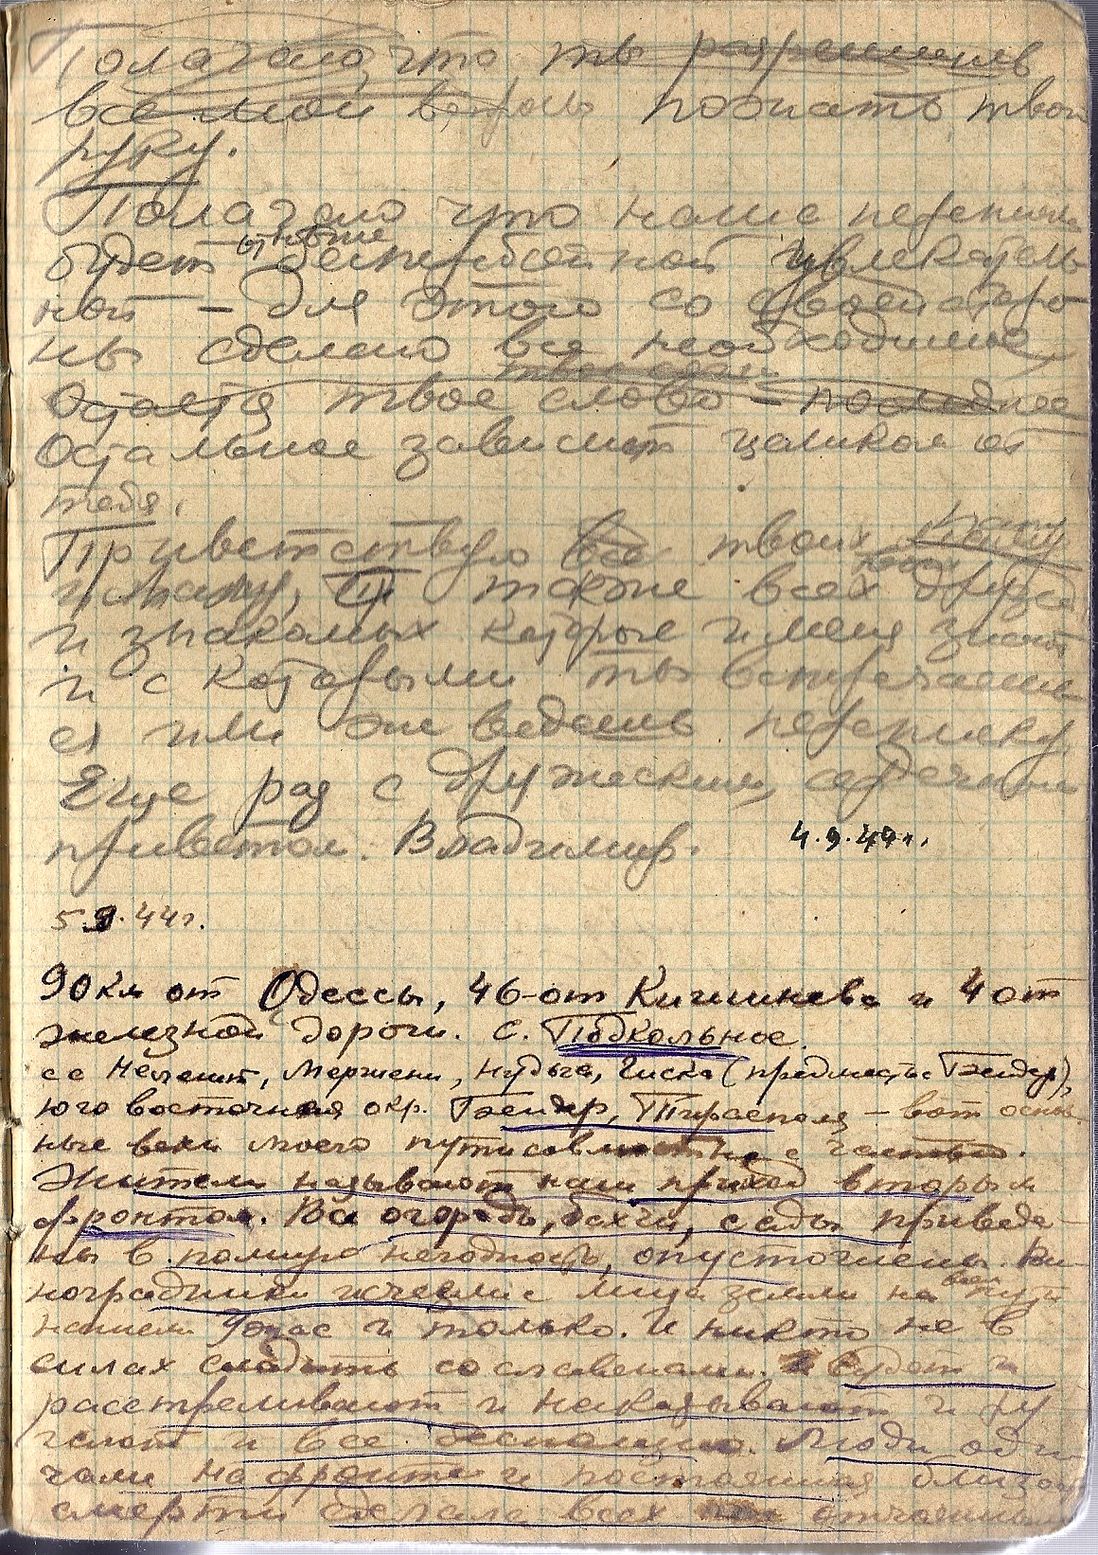 Полагаю, что ты разрешишь
все мои вопросы пожать твою
руку.
Полагаю что наше переписка
будет отныне беспребойной увлекатель
ной – для этого со своей сторо
ны сделано все необходимое,
твое одно
Остается твое слово – последнее
Остальное зависит целиком от
тебя.
Приветствую все твоих Папу
и маму, а также всех друзей
и знакомых которые и меня знают
и с которыми ты встречаешь
ся или же ведешь переписку
Еще раз с дружеским, сердечным
приветом. Владимир. 4.9.44г.
5.9.44г.
90 км от Одессы, 46-от Кишинева и 4 от
железной дороги. с. Подкольное.
сс , Мержени, , Гиска (предместье Бендер),
юго восточная окр. Бендер, Тирасполь – вот основ
ные вехи моего пути совместно с частью.
Жители называют наш приход вторым
фронтом. Все огороды, бахчи, сады приведе-
ны в полную негодность, опустошены. Ви-
ноградники исчезли с лица земли на всем пути
нашем Ужас и только. И никто не в
силах сладить со славенами. Судят и
расстреливают и наказывают и ру
гают и все бесполезно. Люди оди
чали на фронте и постоянная близость
смерти сделала всех отчаянными